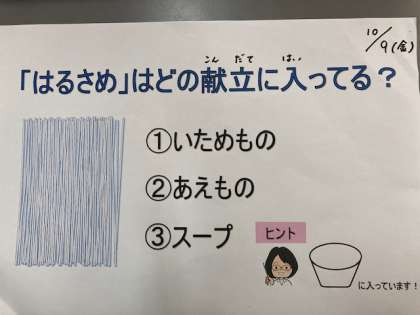 10/9(金)
こんだて はい
「はるさめ」はどの献立に入ってる？
①いためもの
②あえもの
③スープ
ヒント
に入っています！